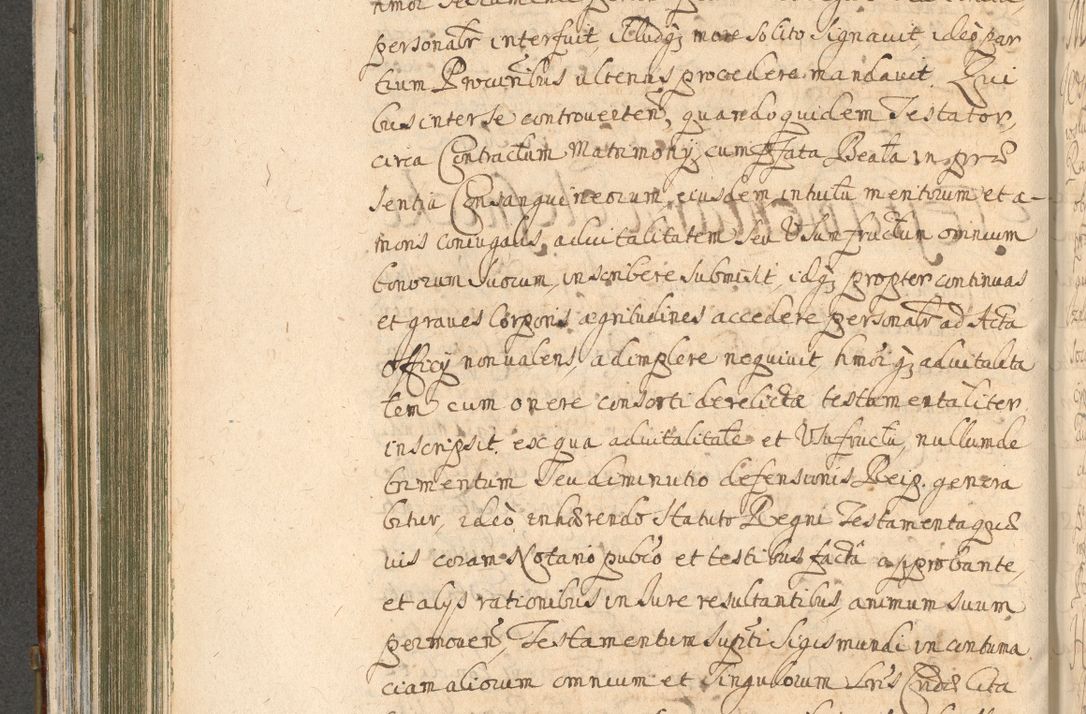 personalr interfuit, illudq; more solito signavit, ideo par
tium Procuribus ulterius procedere mandavit. Qui
bus inter se controverten, quandoquidem Testator,
circa Contractum Matrimony cum Pfata Beata in prae
sentia Consanguineorum ejusdem intuitu meritorum et a-
moris coniugalis, advitalitatem seu Usumfructum omnium
bonorum suorum, inscribere submisit, idq; propter continuas
et graves Corporis aegritudines accedere personalr ad Acta
officy non valens, adimplere nequivit, hmoi q; advitalita
tem cum onere consorti derelictae testamentaliter
inscripsit. ex qua advitalitate et Usufructu, nullum de
trimentum seu diminutio defensionis Reip. genera
bitur, ideo inhaerendo Statuto Regni Testamenta quae
vis coram Notario pubco et testibus facta approbante,
et alys rationibus in Jure resultantibus, animum suum
permoven, Testamentum supti Sigismundi in contuma
ciam aliorum omnium et singulorum